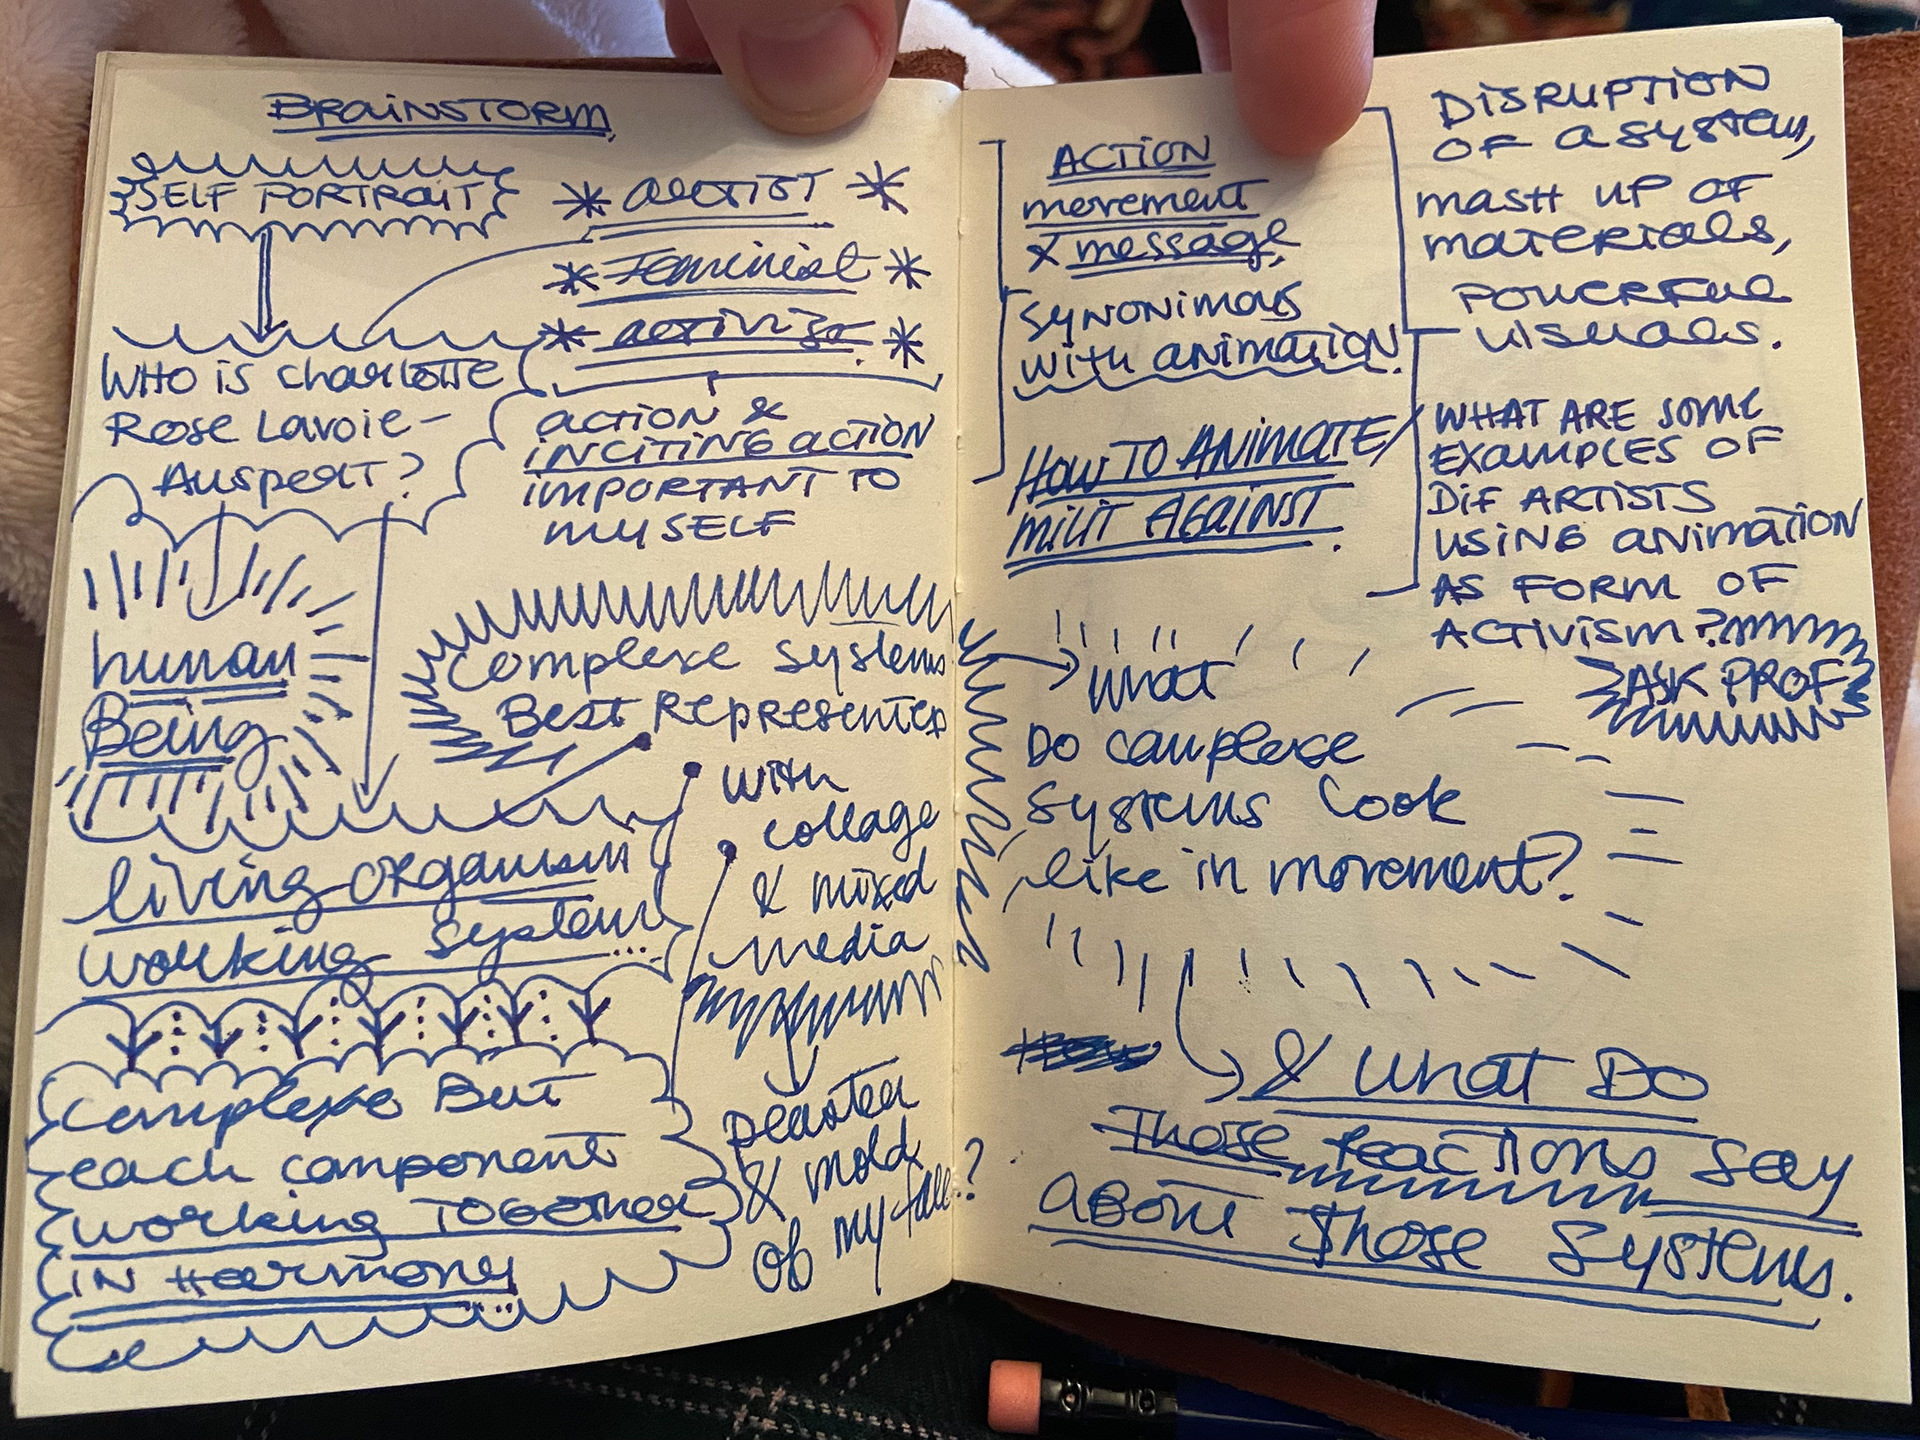 BRAINSTORM,
SELF PORTRAIT
* ARTIST *
* Feminist *
* activist. *
WHO is charlotte
Rose Lavoie-
Auspert?
ACTION &
INCITING ACTION
IMPORTANT TO
MYSELF
human
Being
Complexe systems
Best Represented
with
collage
& mixed
media
living organism
working system...
Complexe But
each component
working TOGETHER
IN HARMONY...
plaster
& mold
of my face?
ACTION
movement
& message,
SYNONIMOUS
with animation.
HOW TO ANIMATE/
MILIT AGAINST.
DISRUPTION
OF a system,
MASH UP OF
MATERIALS,
POWERFUL
VISUALS.
WHAT ARE SOME
EXAMPLES OF
DIF ARTISTS
USING ANIMATION
AS FORM OF
ACTIVISM?
ASK PROF
What
DO complexe
systems look
like in movement?
& what DO
Those reactions say
ABOUT Those Systems.